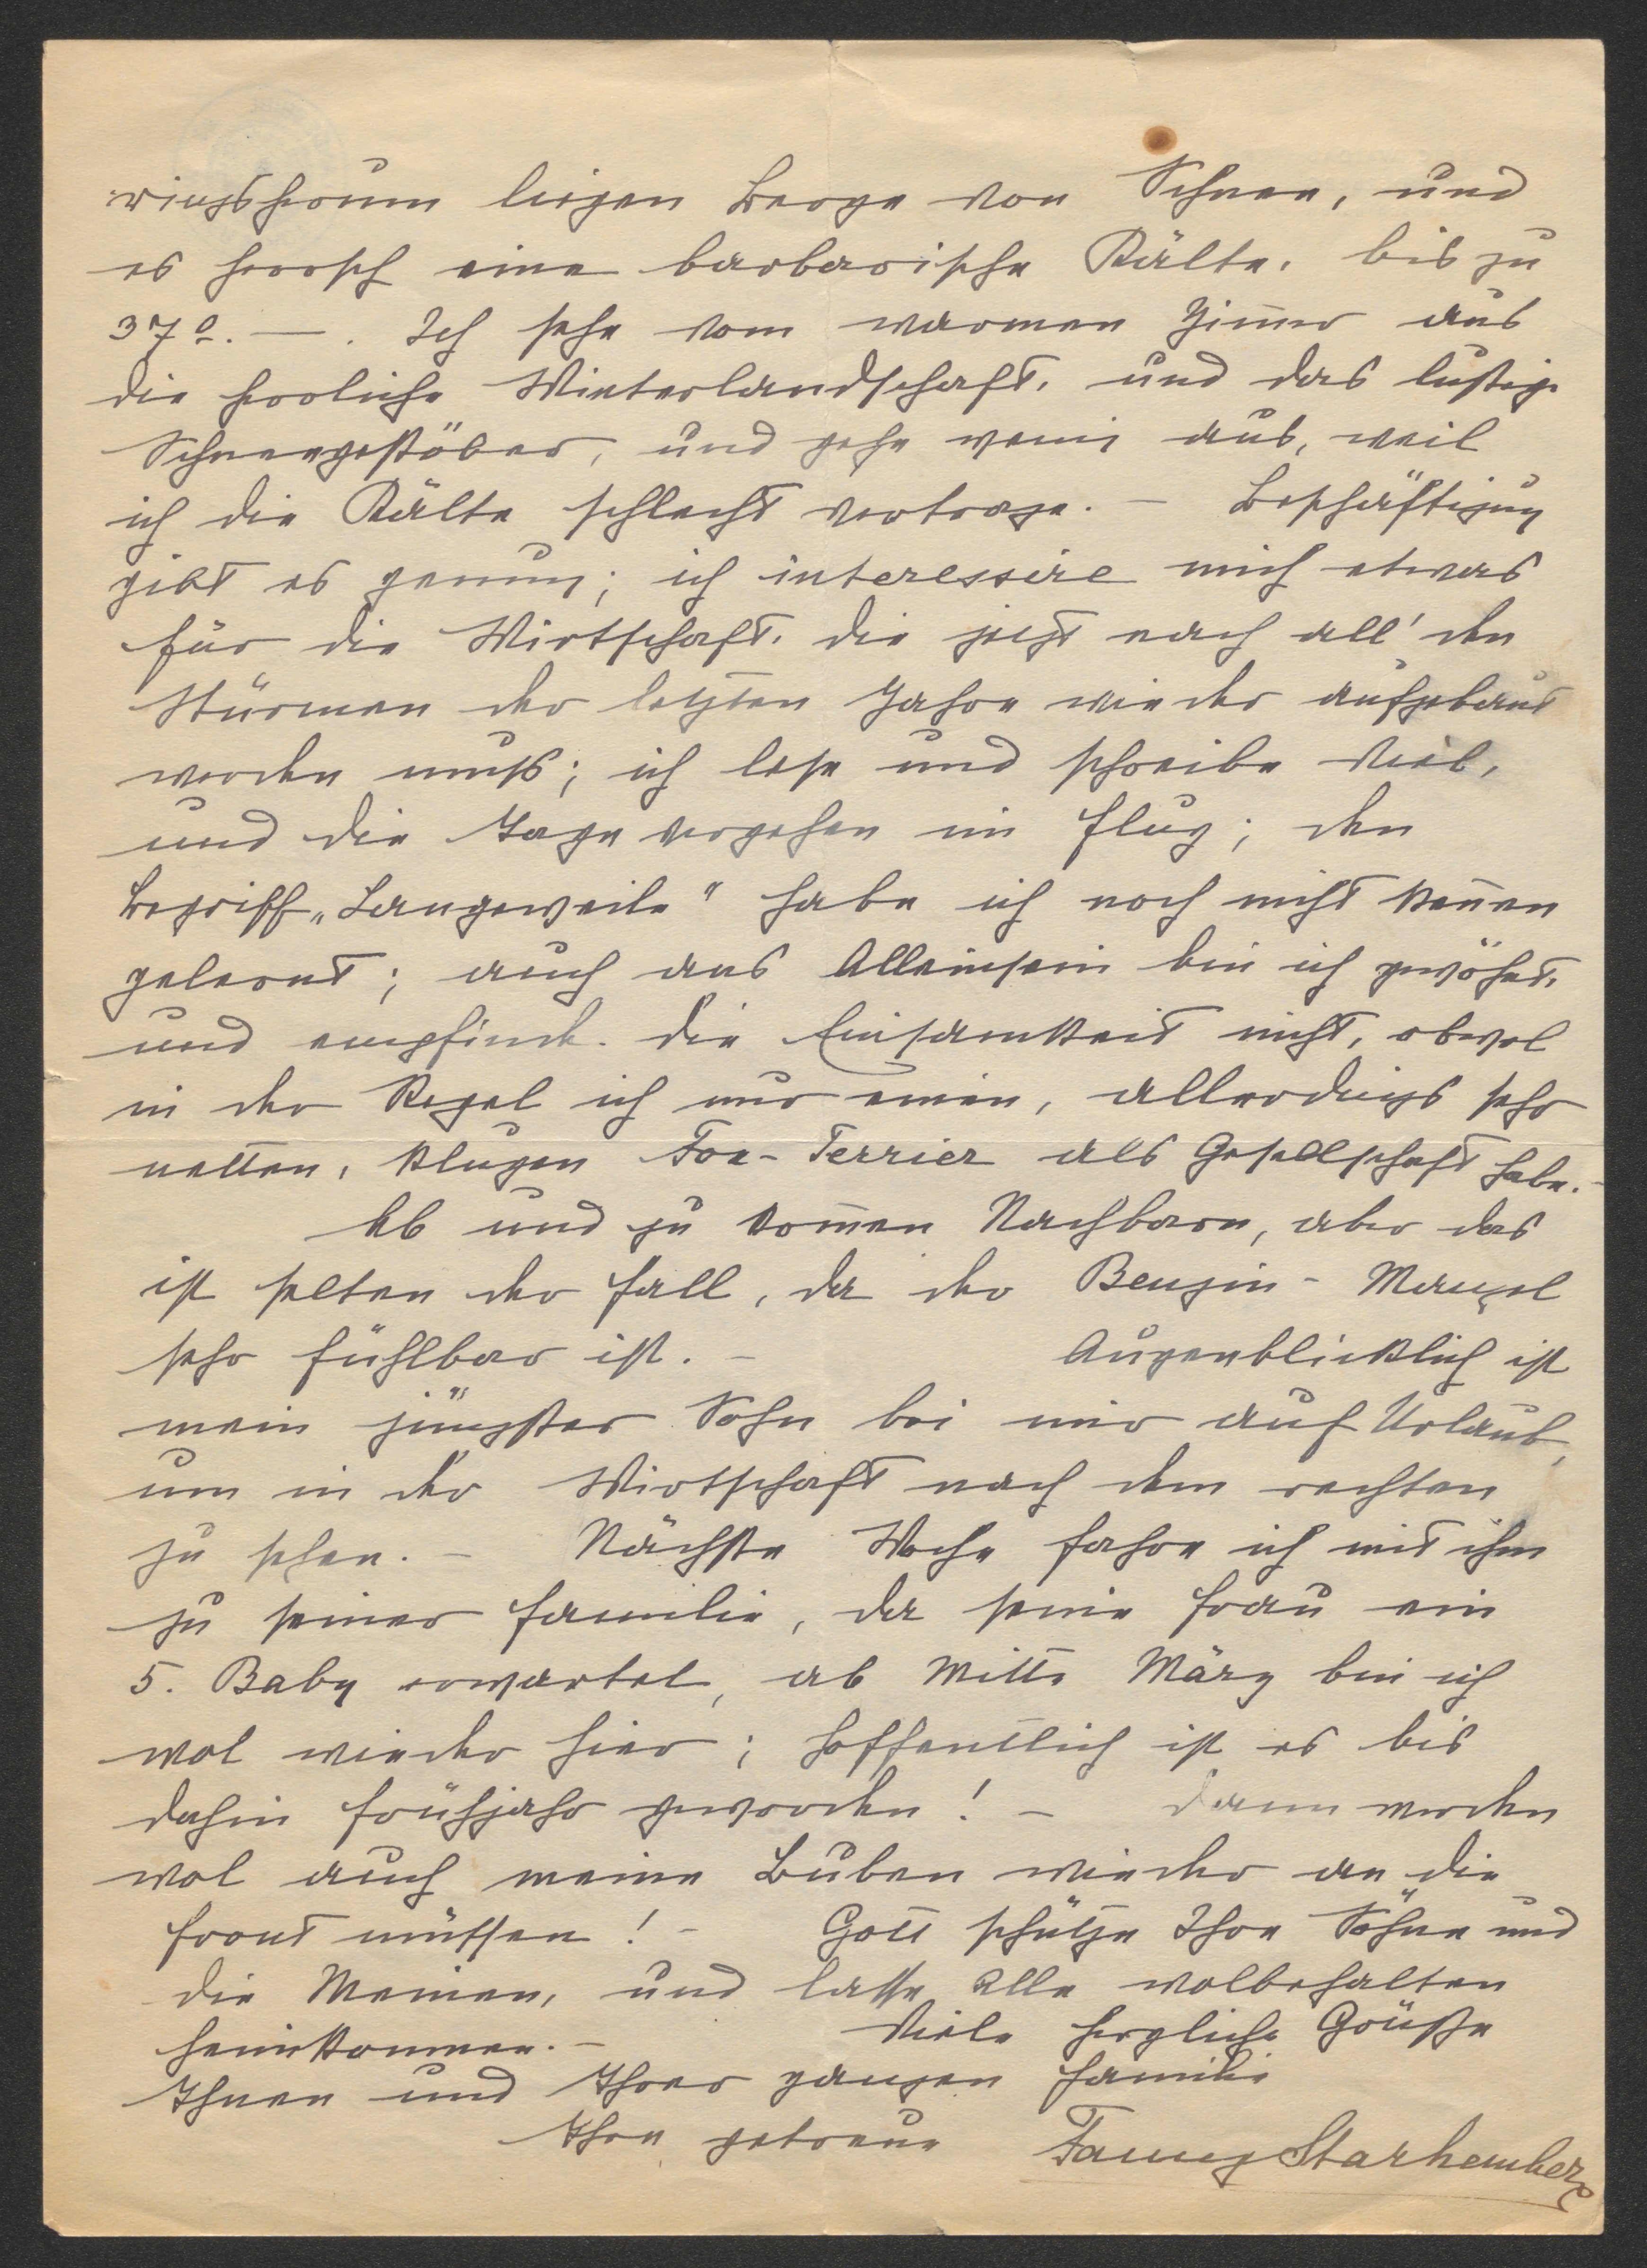 ringsherum liegen Berge von Schnee, und
es herrsch eine barbarische Kälte, bis zu
37º. — . Ich sehe vom warmen Zimmer aus
die herrliche Winterlandschaft, und das lustige
Schneegestöber, und gehe wenig aus, weil
ich die Kälte schlecht vertrage. – Beschäftigung
gibt es genung; ich interessire mich etwas
für die Wirtschaft, die jetzt nach all' den
Stürmen der letzten Jahre wieder aufgebaut
werden muß; ich lese und schreibe viel,
und die Tage vergehen im Flug; den
Begriff „Langeweile" habe ich noch nicht kennen
gelernt; auch ans Alleinsein bin ich gewöhnt,
und empfinde die Einsamkeit nicht, obwol
in der Regel ich nur einen, allerdings sehr
netten, klugen Fox-Terrier als Gesellschaft habe. –
Ab und zu kommen Nachbarn, aber das
ist selten der Fall, da der Benzin-Mangel
sehr fühlbar ist. – Augenblicklich ist
mein jüngster Sohn bei mir auf Urlaub,
um in der Wirtschaft nach dem rechten
zu sehen. – Nächste Woche fahre ich mit ihm
zu seiner Familie, da seine Frau ein
5. Baby erwartet, ab Mitte März bin ich
wol wieder hier; hoffentlich ist es bis
dahin Frühjahr geworden! – Dann werden
wol auch meine Buben wieder an die
Front müssen! – Gott schütze Ihre Söhne und
die Meinen, und lasse Alle wolbehalten
heimkommen. – Viele herzliche Grüße
Ihnen und Ihrer ganzen Familie
Ihre getreue Fanny Starhemberg